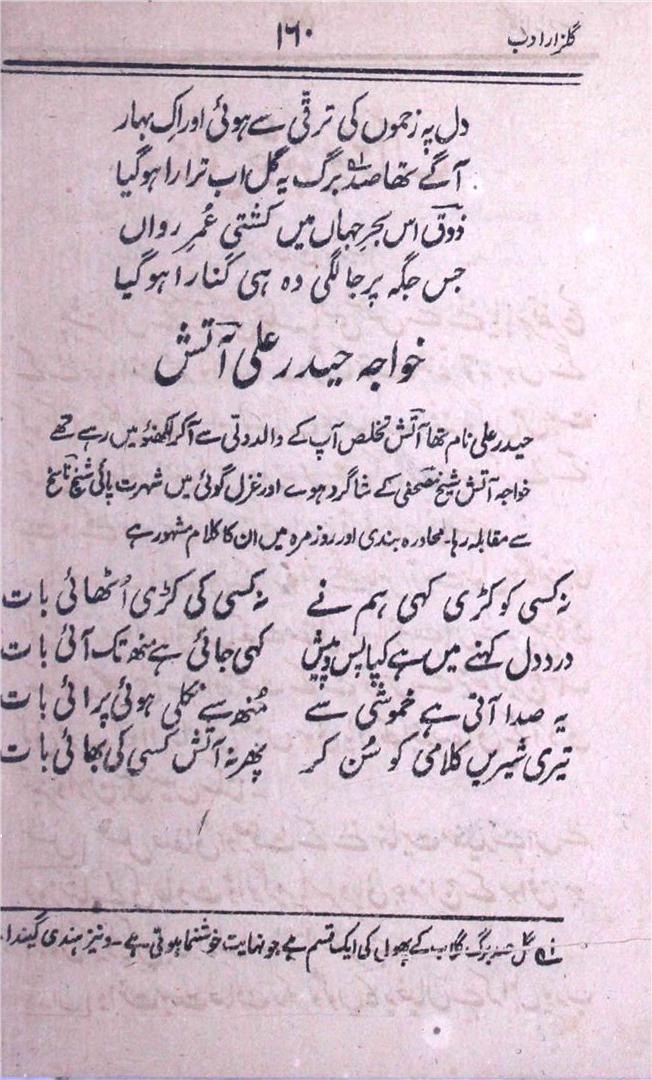 گلزار ادب
۱۶۰
دل پہ زخموں کی ترقّی سے ہوئی اور اِک بہار
آگے تھا صد برگ یہ گل اب ترا را ہوگیا
ذوؔق اس بحرِ جہاں میں کشتیِ عُمرِ رواں
جس جگہ پر جا لگی وہ ہی کِنارا ہوگیا
خواجہ حیدر علی آتش
حیدر علی نام تھا آتش تخلص آپ کے والد دتی سے آکر لکھنؤ میں رہے تھے
خواجہ آتش شیخ مصحفی کے شاگرد ہوے اور غزل گوئی میں شہرت پائی شیخ ناسخ
سے مقابلہ رہا۔ محاورہ بندی اور روزمرہ میں ان کا کلام مشہور ہے
نہ کسی کو کڑی کہی ہم نے نہ کسی کی کڑی اُٹھائی بات
درد دل کہنے میں ہے کیا پس و پیش کہی جائی ہے منھ تک آئی بات
یہ صدا آتی ہے خموشی سے مُنھ سے نکلی ہوئی پرائی بات
تیری شیریں کلامی کو سُن کر پھر نہ آتش کسی کی بھائی بات
گل صد برگ گلاب کے پھول کی ایک قسم ہے جو نہایت خوشنما ہوتی ہے۔ ونیز ہندی گیندا۔